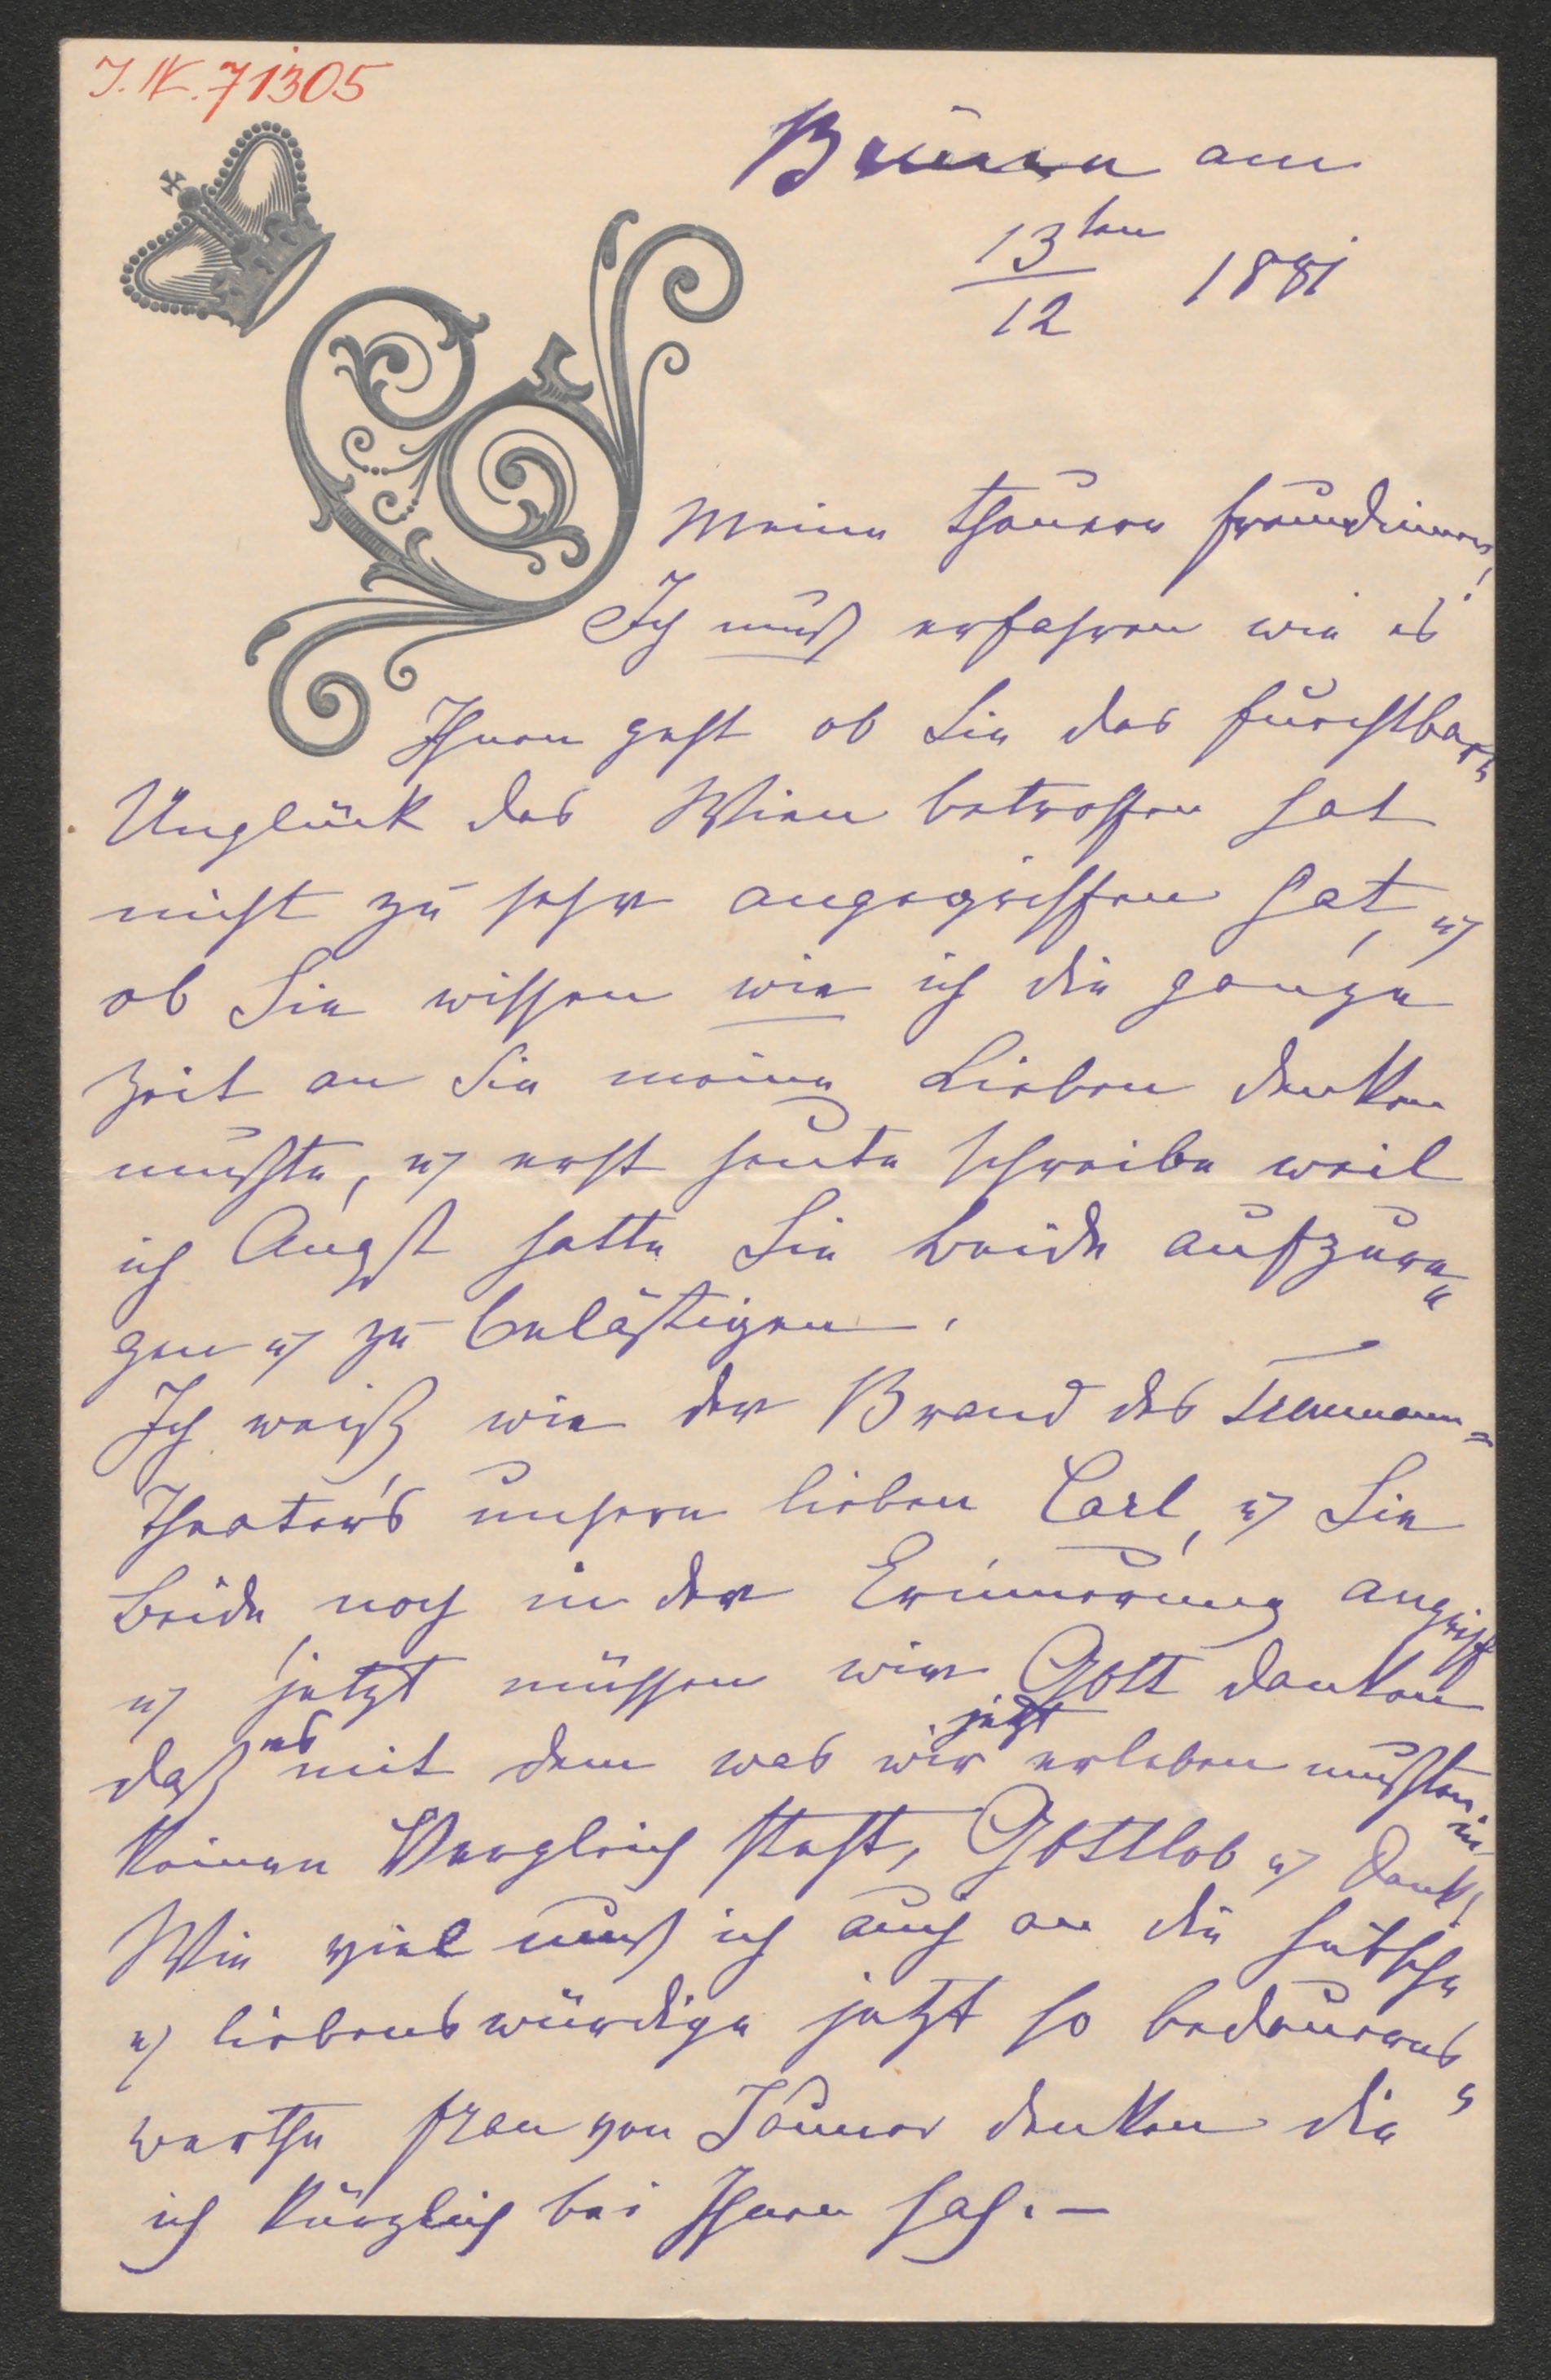 J.N. 71305
Brünn am
13ten
12 1881
Meine theuern Freundinnen!
Ich muß erfahren wie es
Ihnen geht ob Sie das furchtbare
Unglück das Wien betroffen hat
nicht zu sehr angegriffen hat, u
ob Sie wissen wie ich die ganze
Zeit an Sie meine Lieben denken
mußte, u erst heute schreibe weil
ich Angst hatte Sie beide aufzure„
gen u zu belästigen.
Ich weiß wie der Brand des
Theater's unsern lieben Carl, u Sie
beide noch in der Erinnerung angriff
u jetzt müssen wir Gott danken
daß es mit dem was wir jetzt erleben mußten in
keinen Vergleich steht, Gottlob u Dank!
Wie viel muß ich auch an die hübsche
u liebenswürdige jetzt so bedauerns„
werthe Frau von Jauner denken die
ich kürzlich bei Ihnen sah. —